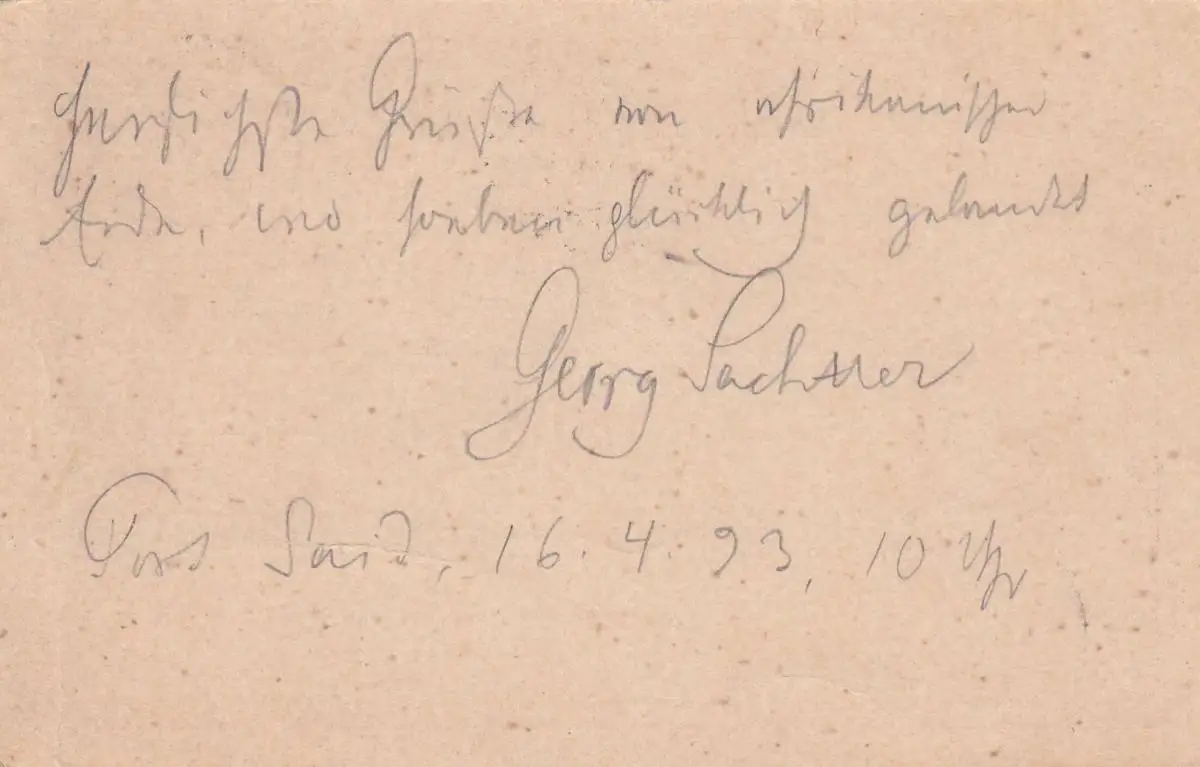 Herzlichste Grüße von afrikanischer
Erde, wo soeben glücklich gelandet
Georg
Port Said, 16. 4. 93, 10 Uhr